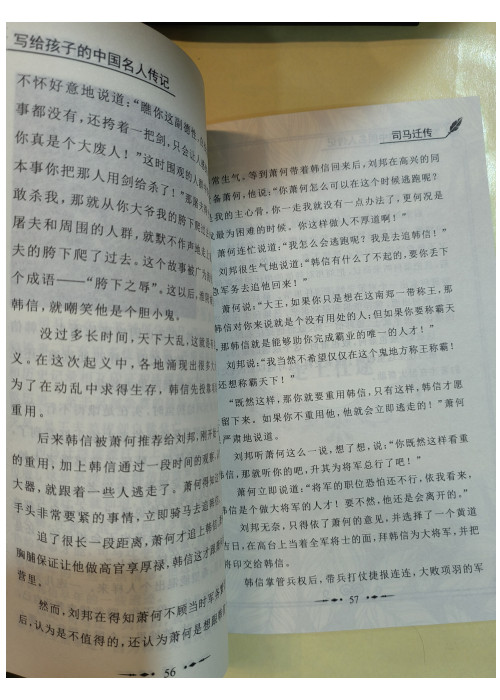 写给孩子的中国名人传记
不怀好意地说道：“瞧你这副德性，
事都没有，还挎着一把剑，只会让人
你真是个大废人！”这时围观的人群
本事你把那人用剑给杀了！”那屠夫
敢杀我，那就从你大爷我的胯下爬过
屠夫和周围的人群，就默不作声地
夫的胯下爬了过去。这个故事被广为
个成语——“胯下之辱”。这以后，
韩信，就嘲笑他是个胆小鬼。
没过多长时间，天下大乱，这就是
义。在这次起义中，各地涌现出很多
为了在动乱中求得生存，韩信先投靠
重用。
后来韩信被萧何推荐给刘邦，刚开
的重用，加上韩信通过一段时间的观察，
大器，就跟着一些人逃走了。萧何得知
手头非常要紧的事情，立即骑马去追韩信
追了很长一段距离，萧何才追上韩信，
胸脯保证让他做高官享厚禄，韩信这才
营里。
然而，刘邦在得知萧何不顾当时军务
后，认为是不值得的，还认为萧何是想
56
司马迁传
常生气。等到萧何带着韩信回来后，刘邦在高兴的同
备萧何，他说：“你萧何怎么可以在这个时候逃跑呢？
我的主心骨，你一走我就没有一点办法了，更何况是
最为困难的时候。你这样做人不厚道啊！”
萧何连忙说道：“我怎么会逃跑呢？我是去追韩信！”
刘邦很生气地说道：“韩信有什么了不起的，要你丢下
军务去追他回来！”
萧何说：“大王，如果你只是想在这南郑一带称王，那
韩信对你来说就是个没有用处的人；但如果你要称霸天
，那韩信就是能够助你完成霸业的唯一的人才！”
刘邦说：“我当然不希望仅仅在这个鬼地方称王称霸！
还想称霸天下！”
“既然这样，那你就要重用韩信，只有这样，韩信才愿
留下来。如果你不重用他，他就会立即逃走的！”萧何
严肃地说道。
刘邦听萧何这么一说，想了想，说：“你既然这样看重
韩信，那就听你的吧，升其为将军总行了吧！”
萧何立即说道：“将军的职位恐怕还不行，依我看来，
韩信是个做大将军的人才！要不然，他还是会离开的。”
刘邦无奈，只得依了萧何的意见，并选择了一个黄道
吉日，在高台上当着全军将士的面，拜韩信为大将军，并把
将印交给韩信。
韩信掌管兵权后，带兵打仗捷报连连，大败项羽的军
57